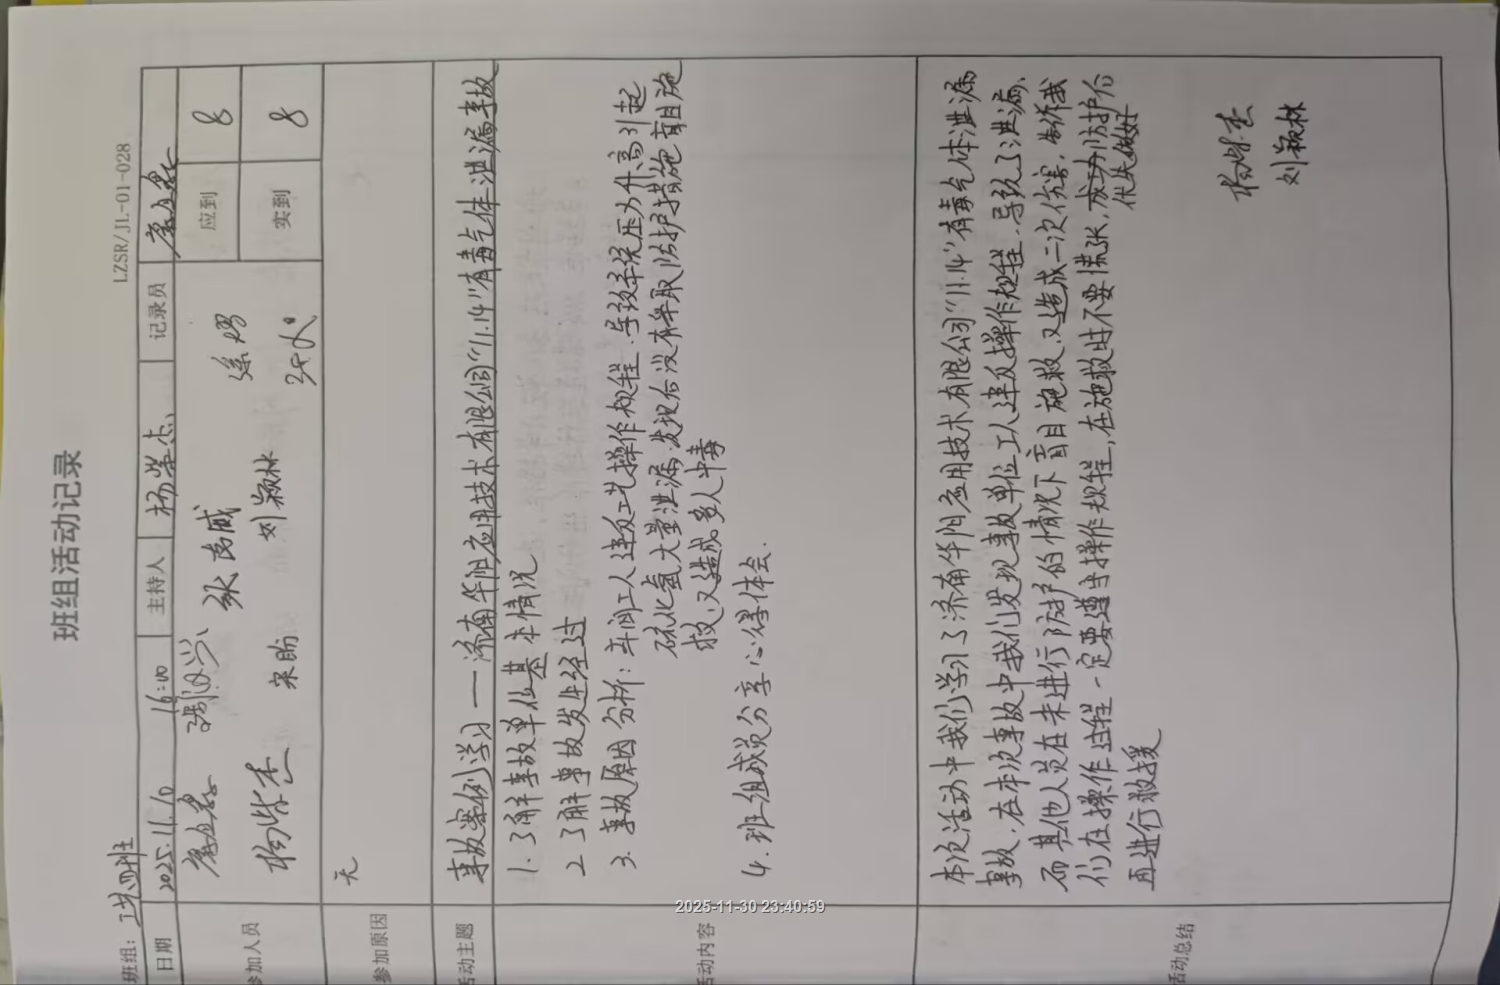 班组活动记录
LZSR/JL-01-028
班组: 四班
日期 2025.11.10 16:00 主持人 杨荣杰 记录员
参加人员 张尚威 徐娟 应到 8
宋盼 刘颖林 实到 8
参加原因 无
活动主题 事故案例学习——济南华阳应用技术有限公司“11.14”有毒气体泄漏事故
活动内容
1. 了解事故单位基本情况
2 了解事故发生经过
3. 事故原因分析: 车间工人违反工艺操作规程.导致系统压力升高引起
硫化氢大量泄漏.发现后没有采取防护措施盲目施
救,又造成多人中毒
4. 班组成员分享心得体会.
活动总结
本次活动中我们学习了济南华阳应用技术有限公司“11.14”有毒气体泄漏
事故,在本次事故中我们发现事故单位工人违反操作规程.导致了泄漏,
而其他人员在未进行防护的情况下盲目施救,又造成二次伤害,告诉我
们在操作过程一定要遵守操作规程,在施救时不要慌张,
优先做好
再进行救援
刘颖林
2025-11-30 23:40:59